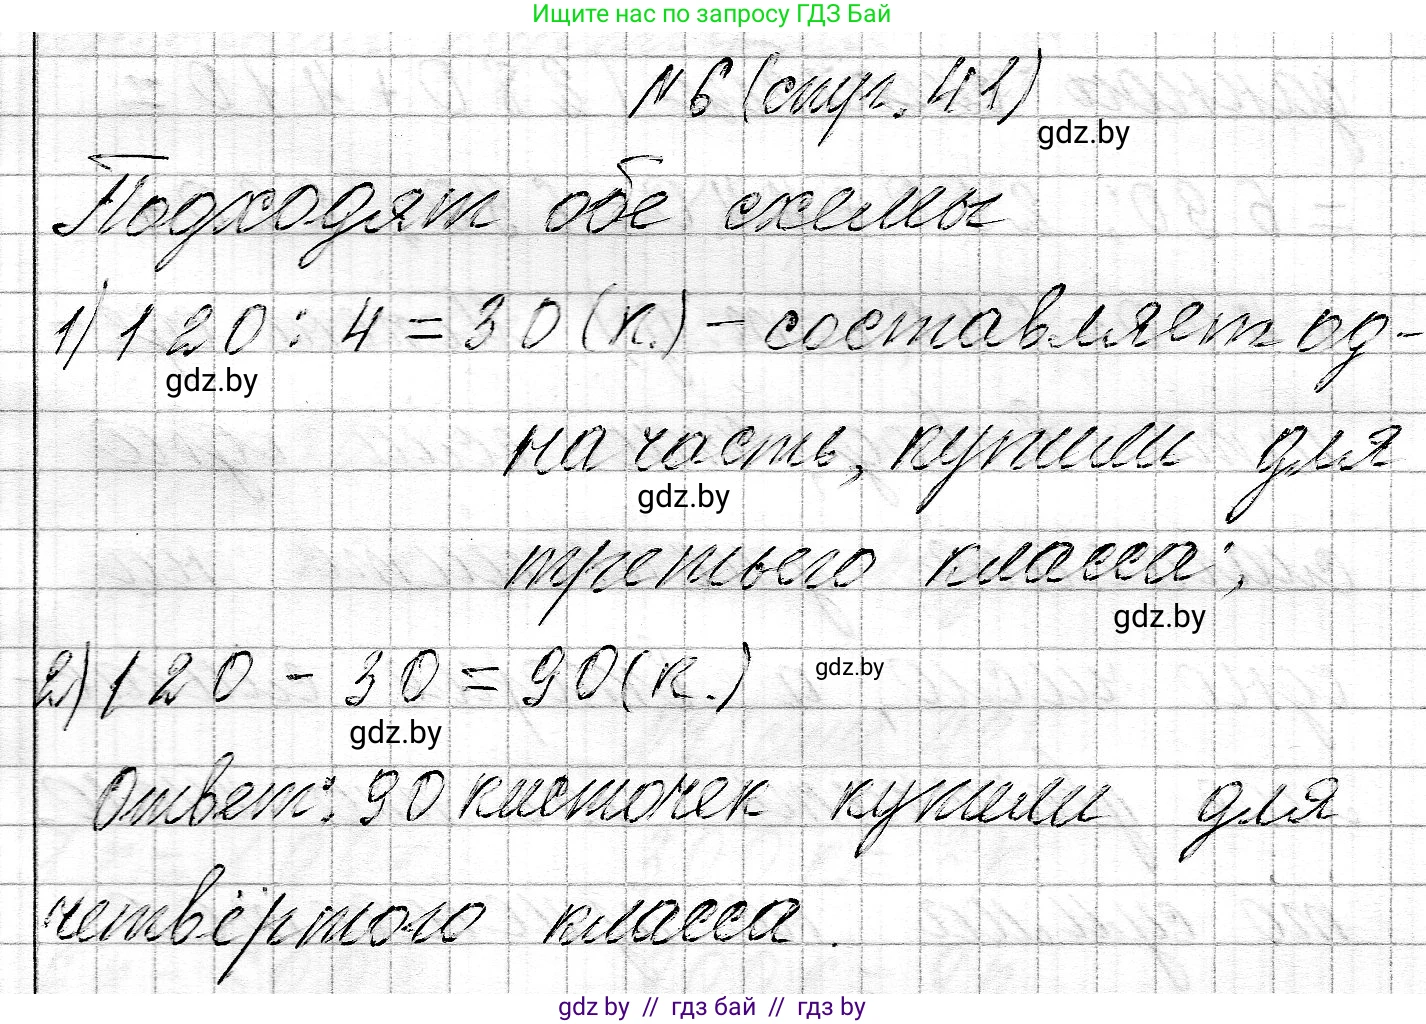 Ищите нас по запросу ГДЗ Бай
№6 (стр. 41)
gdz.by
Подходят обе схемы
1) 120 : 4 = 30 (к.) - составляет од-
gdz.by
на часть, купили для
gdz.by
третьего класса;
gdz.by
2) 120 - 30 = 90 (к.)
gdz.by
gdz.by
Ответ: 90 кисточек купили для
четвёртого класса.
gdz by // гдз бай // гдз by